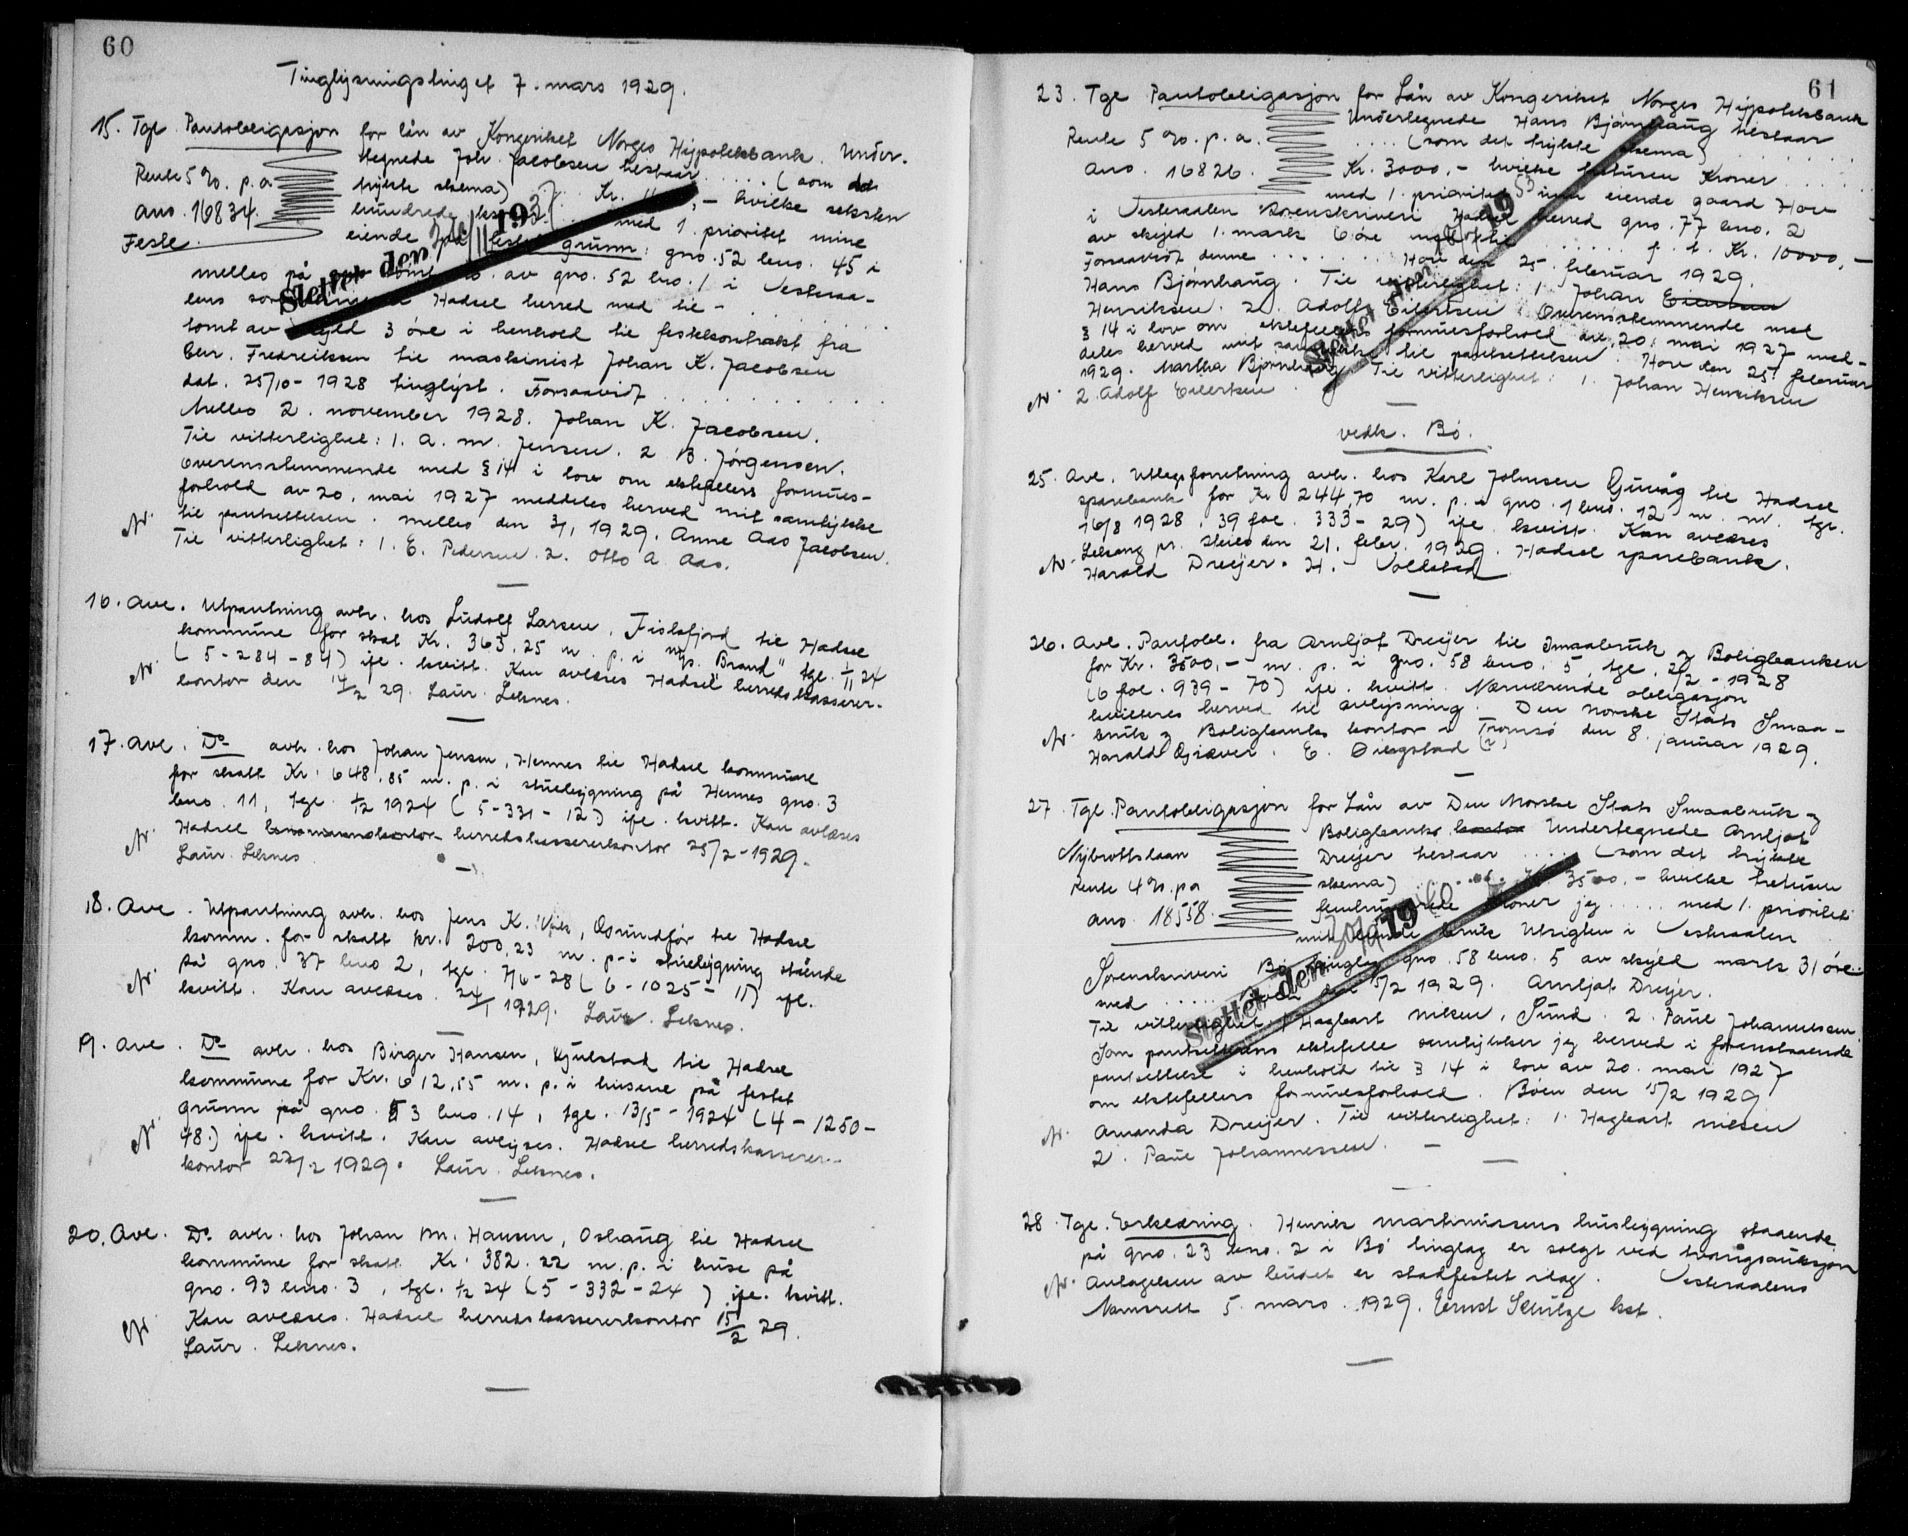 60
Tinglysningstinget 7. mars 1929.
15. Tgl. Pantobligasjon for lån av Kongeriket Norges Hypotekbank. Under-
tegnede Joh. Jacobsen bestaar ..... (som det
Rente 5 % p.a. trykte skema) Kr. ,- hvilke seksten
ans. 16834. hundrede med 1. prioritet mine
Feste. eiende på festet grunn: gno. 52 bno. 45 i
Slettet den 19
Melbo på av gno. 52 bno. 1 i Vesteraa-
lens Hadsel herred med til-
tomt av skyld 3 øre i henhold til festekontrakt fra
Chr. Fredriksen til maskinist Johan K. Jacobsen
dat. 25/10-1928 tinglyst. Forsaavidt
Melbo 2. november 1928. Johan K. Jacobsen.
Til vitterlighet: 1. A. M. Jensen. 2 B. Jörgensen.
Overensstemmende med § 14 i lov om ektefellers formues-
forhold av 20. mai 1927 meddeles herved mit samtykke
N. til pantsettelsen. Melbo den 3/1 1929. Anne Aas Jacobsen.
Til vitterlighet: 1. E. Pedersen. 2. Otto A. Aas.
16. Avl. Utpantning avh. hos Ludolf Larsen, Fiskfjord til Hadsel
kommune for skat Kr. 365,25 m. p. i m/s. "Brand" tgl. 1/11 24
N. (5-284-84) ifl. kvitt. Kan avlæses Hadsel herredskasserer-
kontor den 14/2 29. Laur. Leknes.
17. Avl. Do avh. hos Johan Jensen, Hennes til Hadsel kommune
for skatt Kr. 648,85 m. p. i stuebygning på Hennes gno. 3
bno. 11, tgl. 1/2 1924 (5-331-12) ifl. kvitt. Kan avlæses
N. Hadsel herredskassererkontor 25/2-1929.
Laur. Leknes
18. Avl. Utpantning avh. hos Jens K. Vik, Grundfør til Hadsel
komm. for skatt kr. 200,23 m. p. i stuebygning stående
N. på gno. 37 bno 2, tgl. 7/6-28 (6-1025-11) ifl.
kvitt. Kan avlæses. 24/1 1929. Laur. Leknes.
19. Avl. Do avh. hos Birger Hansen, Kjulstad til Hadsel
kommune for Kr. 612,55 m. p. i husene på festet
grunn på gno. 53 bno. 14, tgl. 13/5-1924 (4-1250-
N. 48.) ifl. kvitt. Kan avlyses. Hadsel herredskasserer-
kontor 22/2 1929. Laur. Leknes.
20. Avl. Do avh. hos Johan M. Hansen, Oshaug til Hadsel
kommune for skatt Kr. 382.22 m. p. i huse på
gno. 93 bno. 3, tgl. 1/2 24 (5-332-24) ifl. kvitt.
N. Kan avlæses. Hadsel herredskassererkontor 15/2 29.
Laur. Leknes.
61
23. Tgl Pantobligasjon for Lån av Kongeriket Norges Hypotekbank
Undertegnede Hans Bjørnhaug bestaar
Rente 5 % p. a. .... (som det trykte skema)
ans. 16826. Kr. 3000,- hvilke tretusen Kroner
med 1. prioritet min eiende gaard Hov
i Vesteraalen Sorenskriveri Hadsel herred gno. 77 bno. 2
av skyld 1. mark 6 øre f. t. Kr. 10000,-
Slettet den 19
Forsaavidt denne ........ Hov den 25. februar 1929.
Hans Bjørnhaug. Til vitterlighet: 1. Johan Eilertsen
Henriksen. 2. Adolf Eilertsen. Overensstemmende med
§ 14 i lov om ektefellers formuesforhold av 20. mai 1927 med-
deles herved mit samtykke til pantsettelsen. Hov den 25. februar
1929. Martha Bjørnhaug. Til vitterlighet: 1. Johan Henriksen
N. 2. Adolf Eilertsen
vedk. Bø.
25. Avl. Utlegsforretning avh. hos Karl Johnsen Guvåg til Hadsel
sparebank for Kr 244,70 m. p. i gno. 1 bno. 12 m. m. tgl.
16/8 1928, 39 fol. 333-29) ifl. kvitt. Kan avlæses
Leksang pr. den 21. febr. 1929. Hadsel sparebank.
N. Harald Dreyer. H. Vollstad
26. Avl. Pantobl. fra Arnljot Dreyer til Smaabruk og Boligbanken
for Kr. 3500,- m. p. i gno. 58 bno. 5, tgl. 2/2-1928
(6 fol. 939-70) ifl. kvitt. Nærværende obligasjon
kvitteres herved til avlysning. Den Norske Stats Smaa-
N. bruk og Boligbanks kontor i Tromsø den 8. januar 1929.
Harald Gjæver. E. Øiegstad (?)
27. Tgl. Pantobligasjon for Lån av Den Norske Stats Smaabruk og
Boligbanks Undertegnede Arnljot
Nybrottslaan Dreyer bestaar .... (som det trykte
Rente 4 % p.a skema) 3500,- hvilke tretusen
ans. 18558. femhundrede kroner jeg ..... med 1. prioritet
mit eiende bruk Utsigten i Vesteraalen
Slettet den 19
Sorenskriveri Bø tinglag gno. 58 bno. 5 av skyld mark 31 øre
med ..... den 15/2 1929. Arnljot Dreyer.
Til vitterlighet. 1 Hagbart Nilsen, Sund. 2. Paul Johannessen
Som pantsetterens ektefelle samtykker jeg herved i forenstaaende
pantsettelse i henhold til § 14 i lov av 20. mai 1927
om ektefellers formuesforhold. Bøen den 15/2 1929
N. Amanda Dreyer. Til vitterlighet: 1. Hagbart Nilsen
2. Paul Johannessen.
28. Tgl. Erklæring. Henrik Martinussens husbygning staaende
på gno. 23 bno. 2 i Bø tinglag er solgt ved tvangsauksjon
N. Antagelsen av budet er stadfestet idag. Vesteraalens
Namsrett 5. mars. 1929. Ernst Schütze kst.